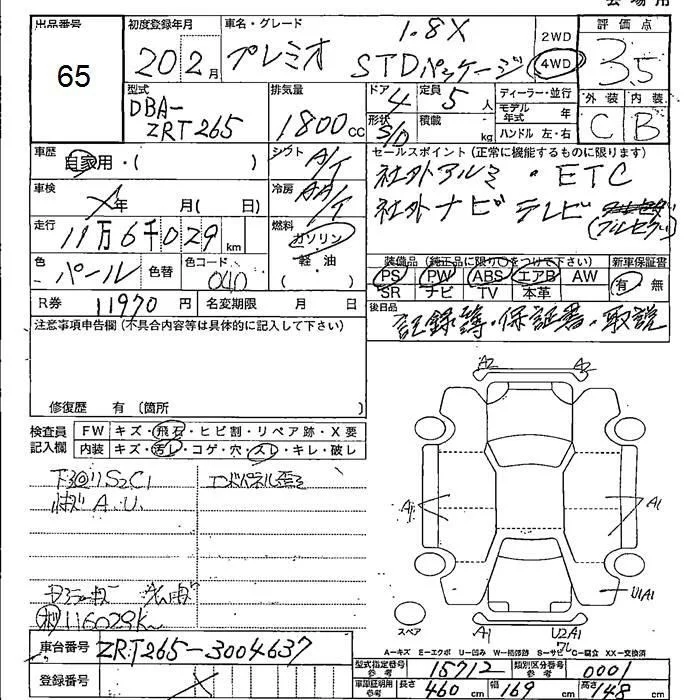 出品番号
65
初度登録年月
20年2月
車名・グレード
プレミオ
1.8X
STDパッケージ
2WD
4WD
評価点
3.5
外装 内装
C B
型式
DBA-
ZRT265
排気量
1800cc
ドア 4
定員 5人
形状 S/D
積載 kg
ディーラー・並行
モデル年式 年
ハンドル 左・右
車歴
自家用・( )
シフト A/T
車検
年 月( 日)
冷房 AA/T
走行
11万6千029km
燃料
ガソリン
軽・油
色
パール
色替
色コード
040
R券 11970円
名変期限 月 日
セールスポイント(正常に機能するものに限ります)
社外アルミ・ETC
社外ナビ テレビ
(フルセグ)
装備品(純正品に限り○をつけて下さい)
新車保証書
PS PW ABS エアB AW
有 無
SR ナビ TV 本革
後日品
記録簿・保証書・取説
注意事項申告欄(不具合内容等は具体的に記入して下さい)
修復歴 有(箇所
検査員
記入欄
FW キズ・飛石・ヒビ割・リペア跡・X要
内装 キズ・汚レ・コゲ・穴・スレ・キレ・破レ
エンドパネル歪
A.U.
116029K
A2 A2
A1 A1
U1A1
A1 U2A1
スペア
A-キズ E-エクボ U-凹み W-補修跡 S-サビ C-腐食 XX-交換済
車台番号 ZRT265-3004637
登録番号
型式指定番号参考 15712
類別区分番号参考 0001
車庫証明用参考 長さ 460cm 幅 169cm 高さ 148cm